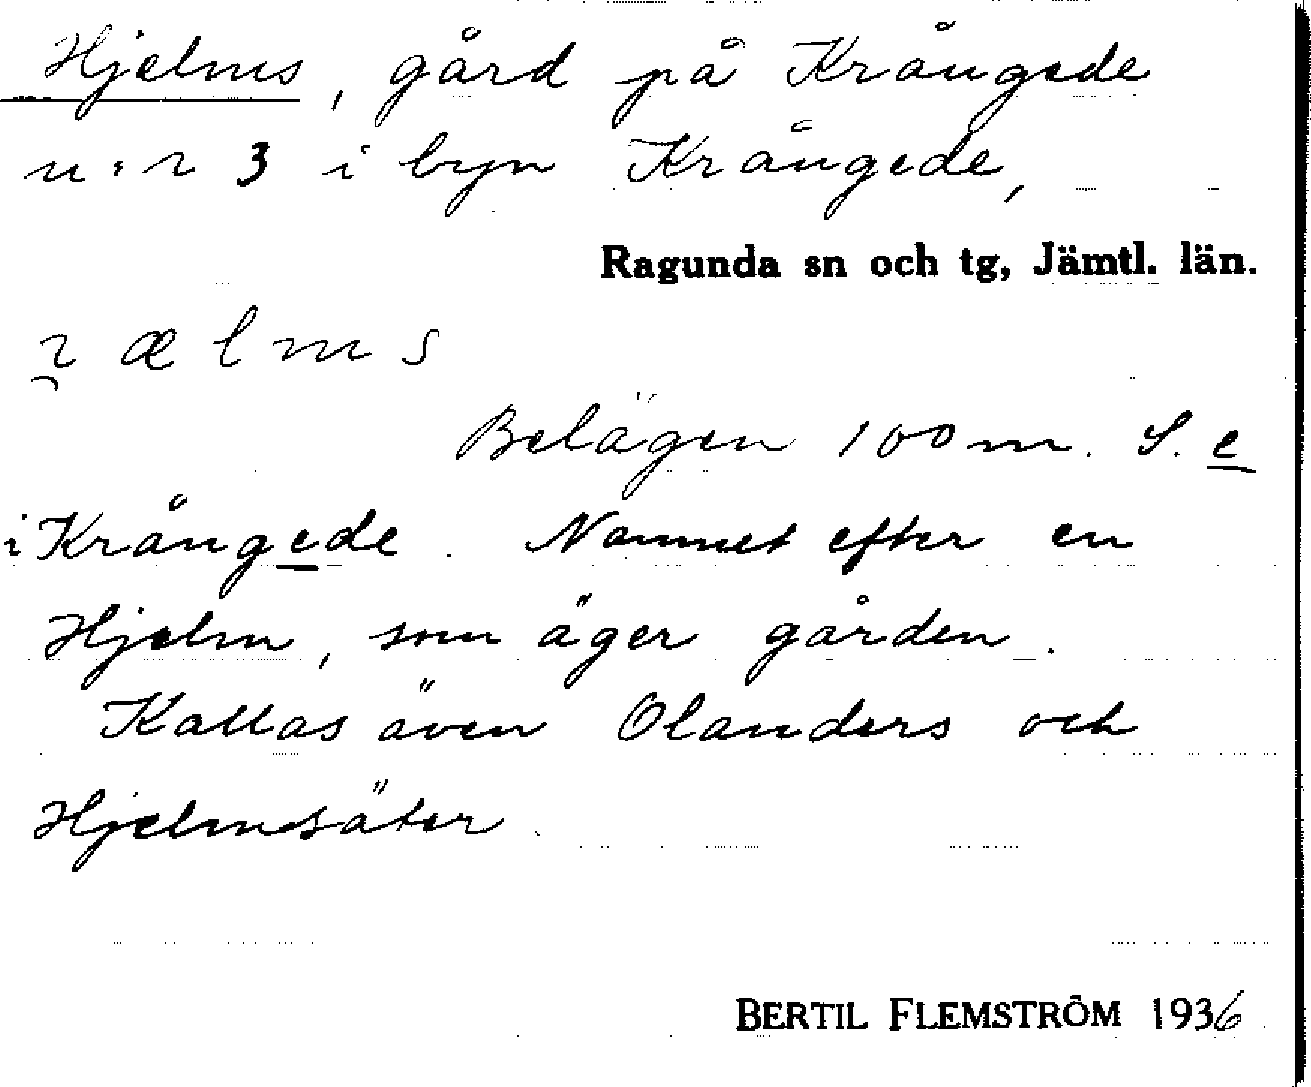 Hjelms, gård på Krångede
n:r 3 i byn Krångede,
Ragunda sn och tg, Jämtl. län.
ælms
Belägen 100 m. S. e
i Krångede. Namnet efter en
Hjelm, som äger gården.
Kallas även Olanders och
Hjelmsäter.
BERTIL FLEMSTRÖM 1936